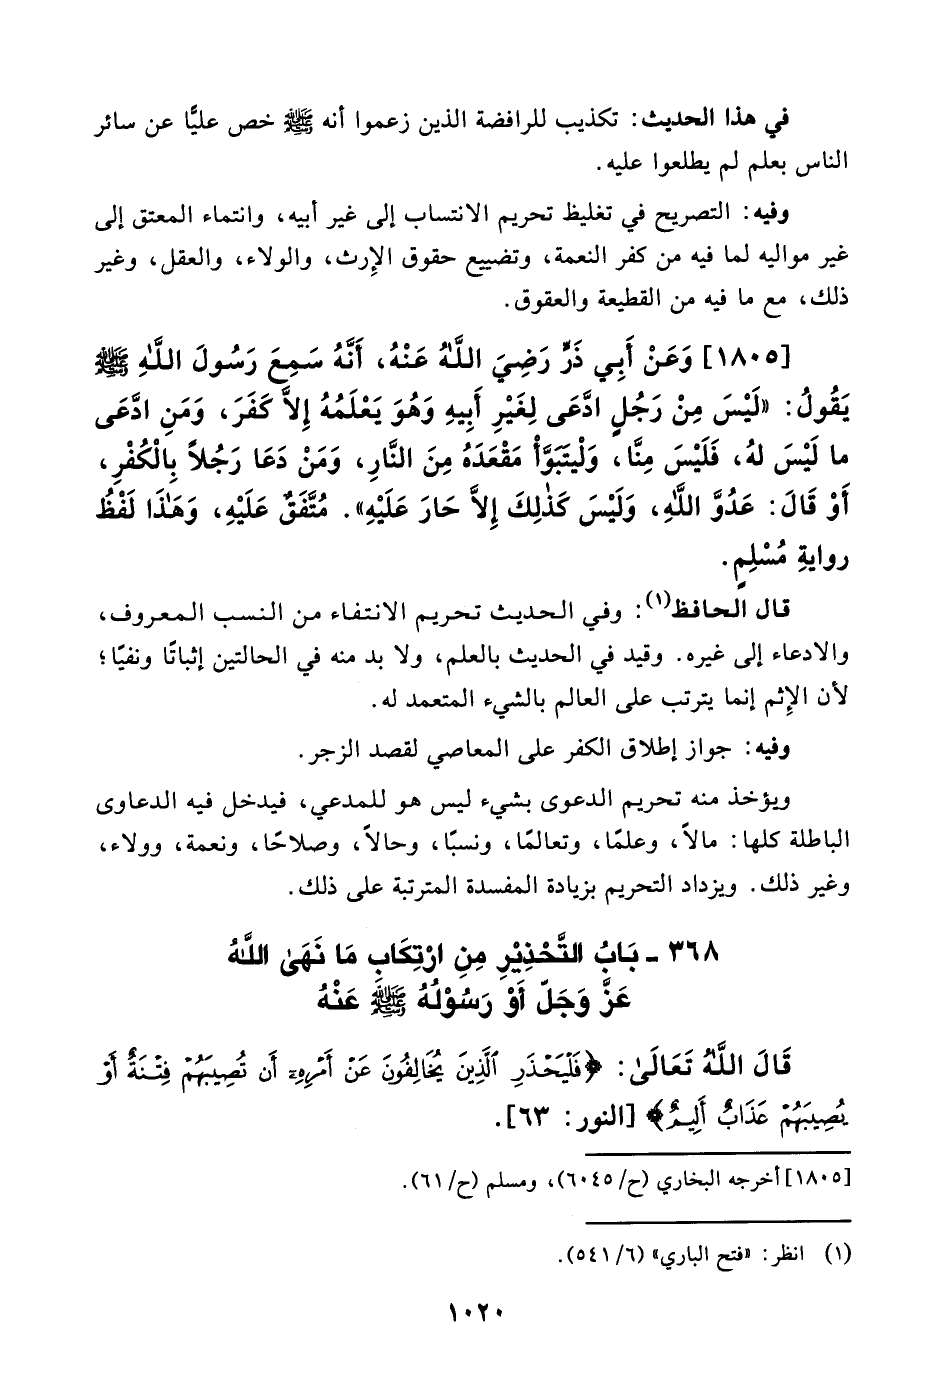 في هذا الحديث: تكذيب للرافضة الذين زعموا أنه ﷺ خص عليًّا عن سائر
الناس بعلم لم يطلعوا عليه.
وفيه: التصريح في تغليظ تحريم الانتساب إلى غير أبيه، وانتماء المعتق إلى
غير مواليه لما فيه من كفر النعمة، وتضييع حقوق الإرث، والولاء، والعقل، وغير
ذلك، مع ما فيه من القطيعة والعقوق.
[١٨٠٥] وَعَنْ أَبِي ذَرٍّ رَضِيَ اللَّهُ عَنْهُ، أَنَّهُ سَمِعَ رَسُولَ اللَّهِ ﷺ
يَقُولُ: «لَيْسَ مِنْ رَجُلٍ ادَّعَى لِغَيْرِ أَبِيهِ وَهُوَ يَعْلَمُهُ إِلاَّ كَفَرَ، وَمَنِ ادَّعَى
ما لَيْسَ لهُ، فَلَيْسَ مِنَّا، وَلْيَتَبَوَّأْ مَقْعَدَهُ مِنَ النَّارِ، وَمَنْ دَعَا رَجُلاً بِالْكُفْرِ،
أَوْ قَالَ: عَدُوَّ اللَّهِ، وَلَيْسَ كَذٰلِكَ إِلاَّ حَارَ عَلَيْهِ». مُتَّفَقٌ عَلَيْهِ، وَهَٰذَا لَفْظُ
روايةِ مُسْلِمٍ.
قال الحافظ(١): وفي الحديث تحريم الانتفاء من النسب المعروف،
والادعاء إلى غيره. وقيد في الحديث بالعلم، ولا بد منه في الحالتين إثباتًا ونفيًا؛
لأن الإثم إنما يترتب على العالم بالشيء المتعمد له.
وفيه: جواز إطلاق الكفر على المعاصي لقصد الزجر.
ويؤخذ منه تحريم الدعوى بشيء ليس هو للمدعي، فيدخل فيه الدعاوى
الباطلة كلها: مالاً، وعلمًا، وتعالمًا، ونسبًا، وحالاً، وصلاحًا، ونعمة، وولاء،
وغير ذلك. ويزداد التحريم بزيادة المفسدة المترتبة على ذلك.
٣٦٨ - بَابُ التَّحْذِيْرِ مِنِ ارْتِكَابِ مَا نَهَىٰ اللَّهُ
عَزَّ وَجَلَّ أَوْ رَسُوْلُهُ ﷺ عَنْهُ
قَالَ اللَّهُ تَعَالَىٰ: ﴿فَلْيَحْذَرِ ٱلَّذِينَ يُخَالِفُونَ عَنْ أَمْرِهِۦٓ أَن تُصِيبَهُمْ فِتْنَةٌ أَوْ
يُصِيبَهُمْ عَذَابٌ أَلِيمٌ﴾ [النور: ٦٣].
[١٨٠٥] أخرجه البخاري (ح/ ٦٠٤٥)، ومسلم (ح/ ٦١).
(١) انظر: «فتح الباري» (٦/ ٥٤١).
١٠٢٠